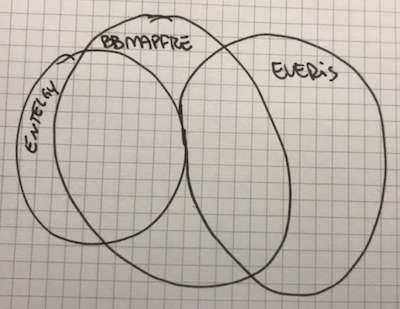 ENTELGY
BBMAPFRE
EVERIS